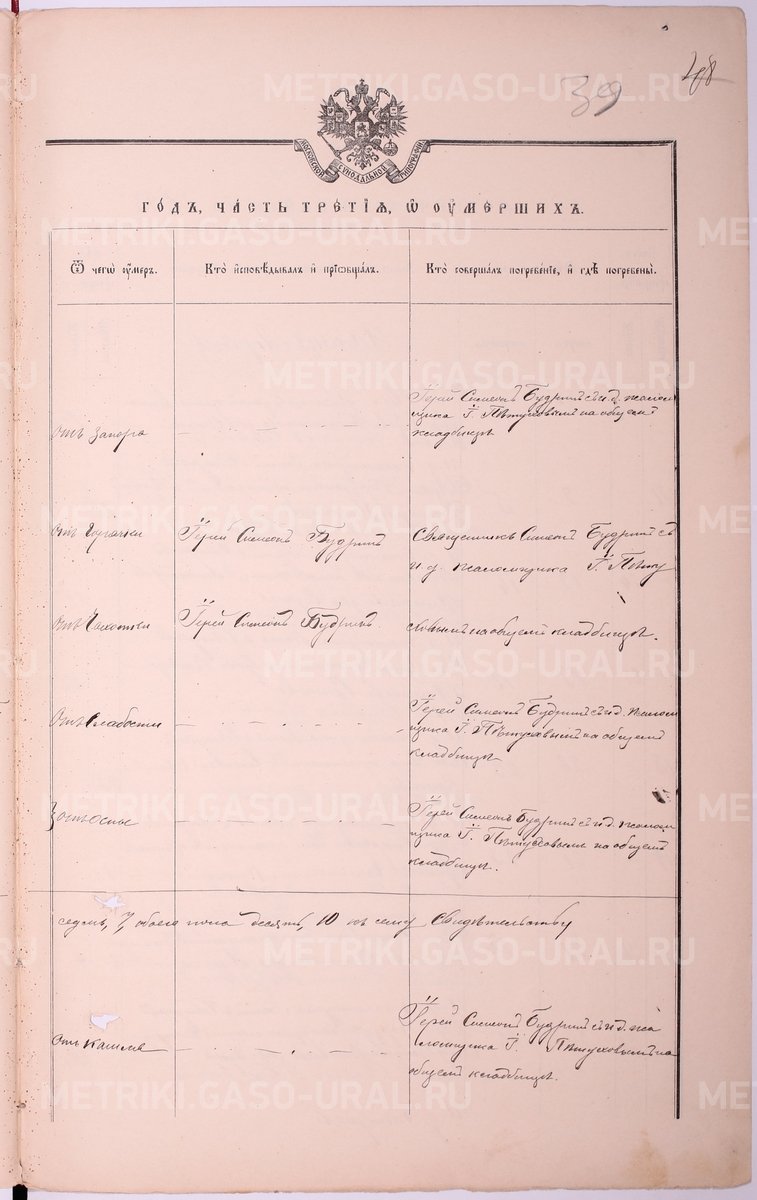 39 48
МОСКОВСКОЙ СѴНОДАЛЬНОЙ ТИПОГРАФІИ
ГОДЪ, ЧАСТЬ ТРЕТІЯ, Ѡ ОУМЕРШИХЪ.
Ѿ чегѡ оумеръ.
Кто исповѣдывалъ и пріобщалъ.
Кто совершалъ погребеніе, и гдѣ погребены.
отъ Запора
Іерей Симеонъ Будринъ съ и. д. псалом
щика І. Пѣтуховымъ на общемъ
кладбищѣ
отъ Горячки
Іерей Симеонъ Будринъ
Священникъ Симеонъ Будринъ съ
и. д. псаломщика І. Пѣту
отъ Чахотки
Іерей Симеонъ Будринъ
ховымъ на общемъ кладбищѣ.
отъ Слабости
Іерей Симеонъ Будринъ съ и. д. псалом
щика І. Пѣтуховымъ на общемъ
кладбищѣ
отъ Оспы
Іерей Симеонъ Будринъ съ и. д. псалом
щика І. Пѣтуховымъ на общемъ
кладбищѣ.
седмь, 7, обоего пола десять, 10 къ сему Свидѣтельству
отъ Кашля
Іерей Симеонъ Будринъ съ и. д. пса
ломщика І. Пѣтуховымъ на
общемъ кладбищѣ.
METRIKI.GASO-URAL.RU